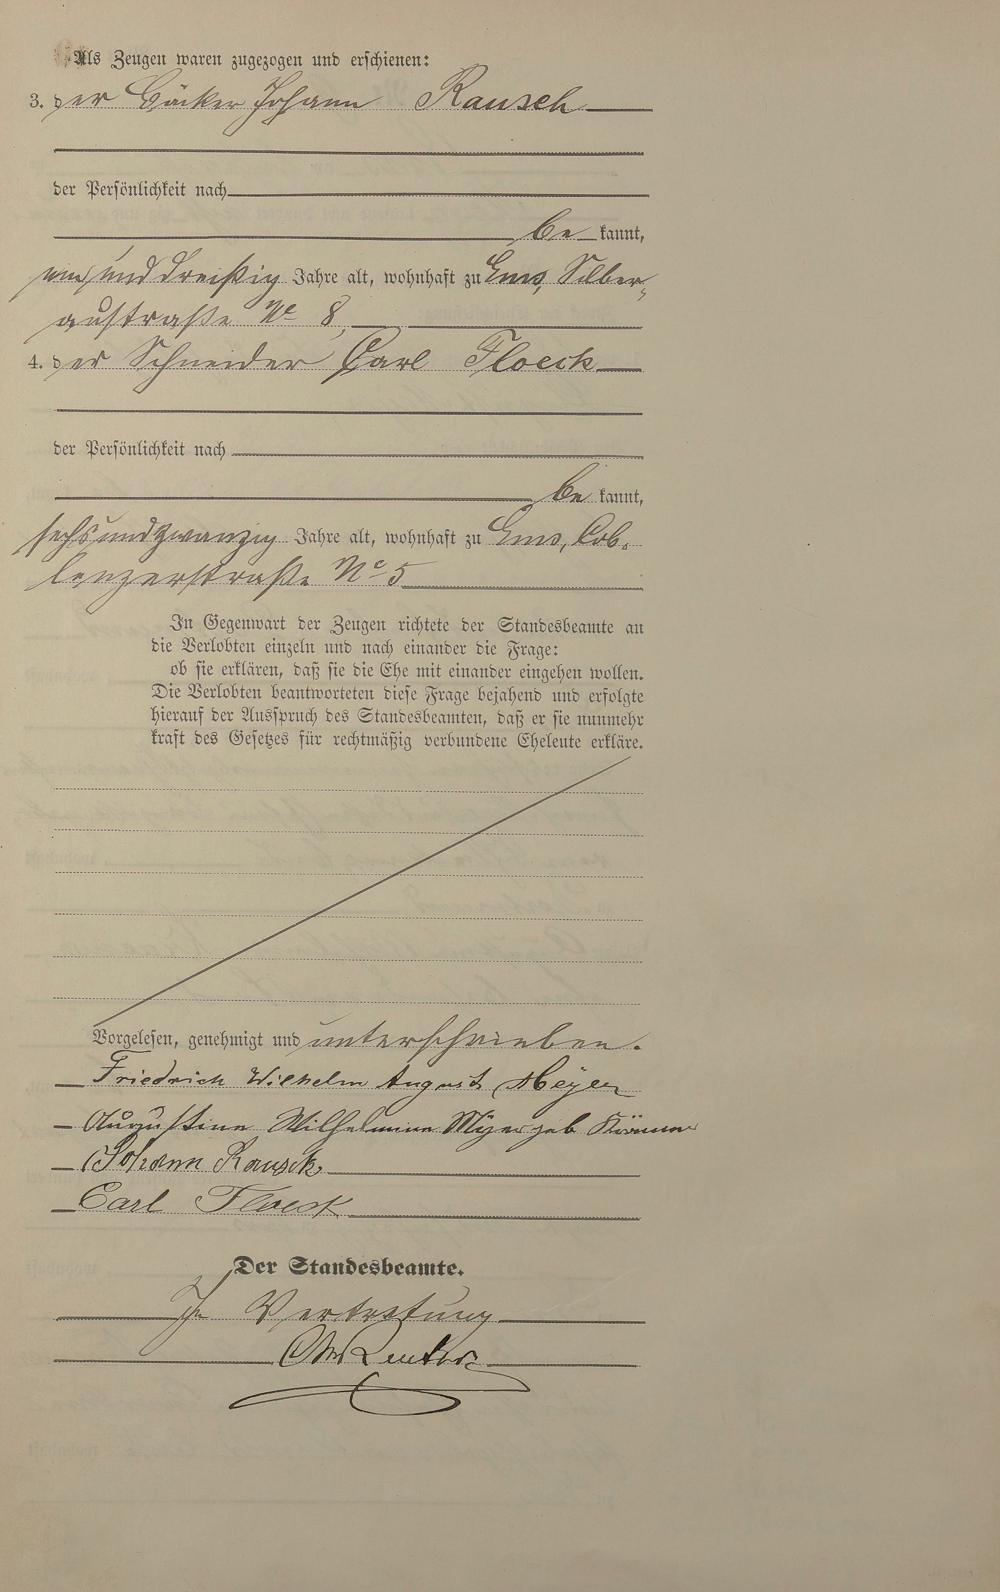 Als Zeugen waren zugezogen und erschienen:
3. der Bäcker Johann Rausch
der Persönlichkeit nach
be kannt,
und dreißig Jahre alt, wohnhaft zu Ems, Silber-
austraße No 8,
4. der Schneider Carl Floeck
der Persönlichkeit nach
be kannt,
sechsundzwanzig Jahre alt, wohnhaft zu Ems, Cob-
lenzerstraße No 5
In Gegenwart der Zeugen richtete der Standesbeamte an
die Verlobten einzeln und nach einander die Frage:
ob sie erklären, daß sie die Ehe mit einander eingehen wollen.
Die Verlobten beantworteten diese Frage bejahend und erfolgte
hierauf der Ausspruch des Standesbeamten, daß er sie nunmehr
kraft des Gesetzes für rechtmäßig verbundene Eheleute erkläre.
Vorgelesen, genehmigt und unterschrieben.
Friedrich Wilhelm August Meyer
Augustine Wilhelmine Meyer geb
Johann Rausch
Carl Floeck
Der Standesbeamte.
In Vertretung